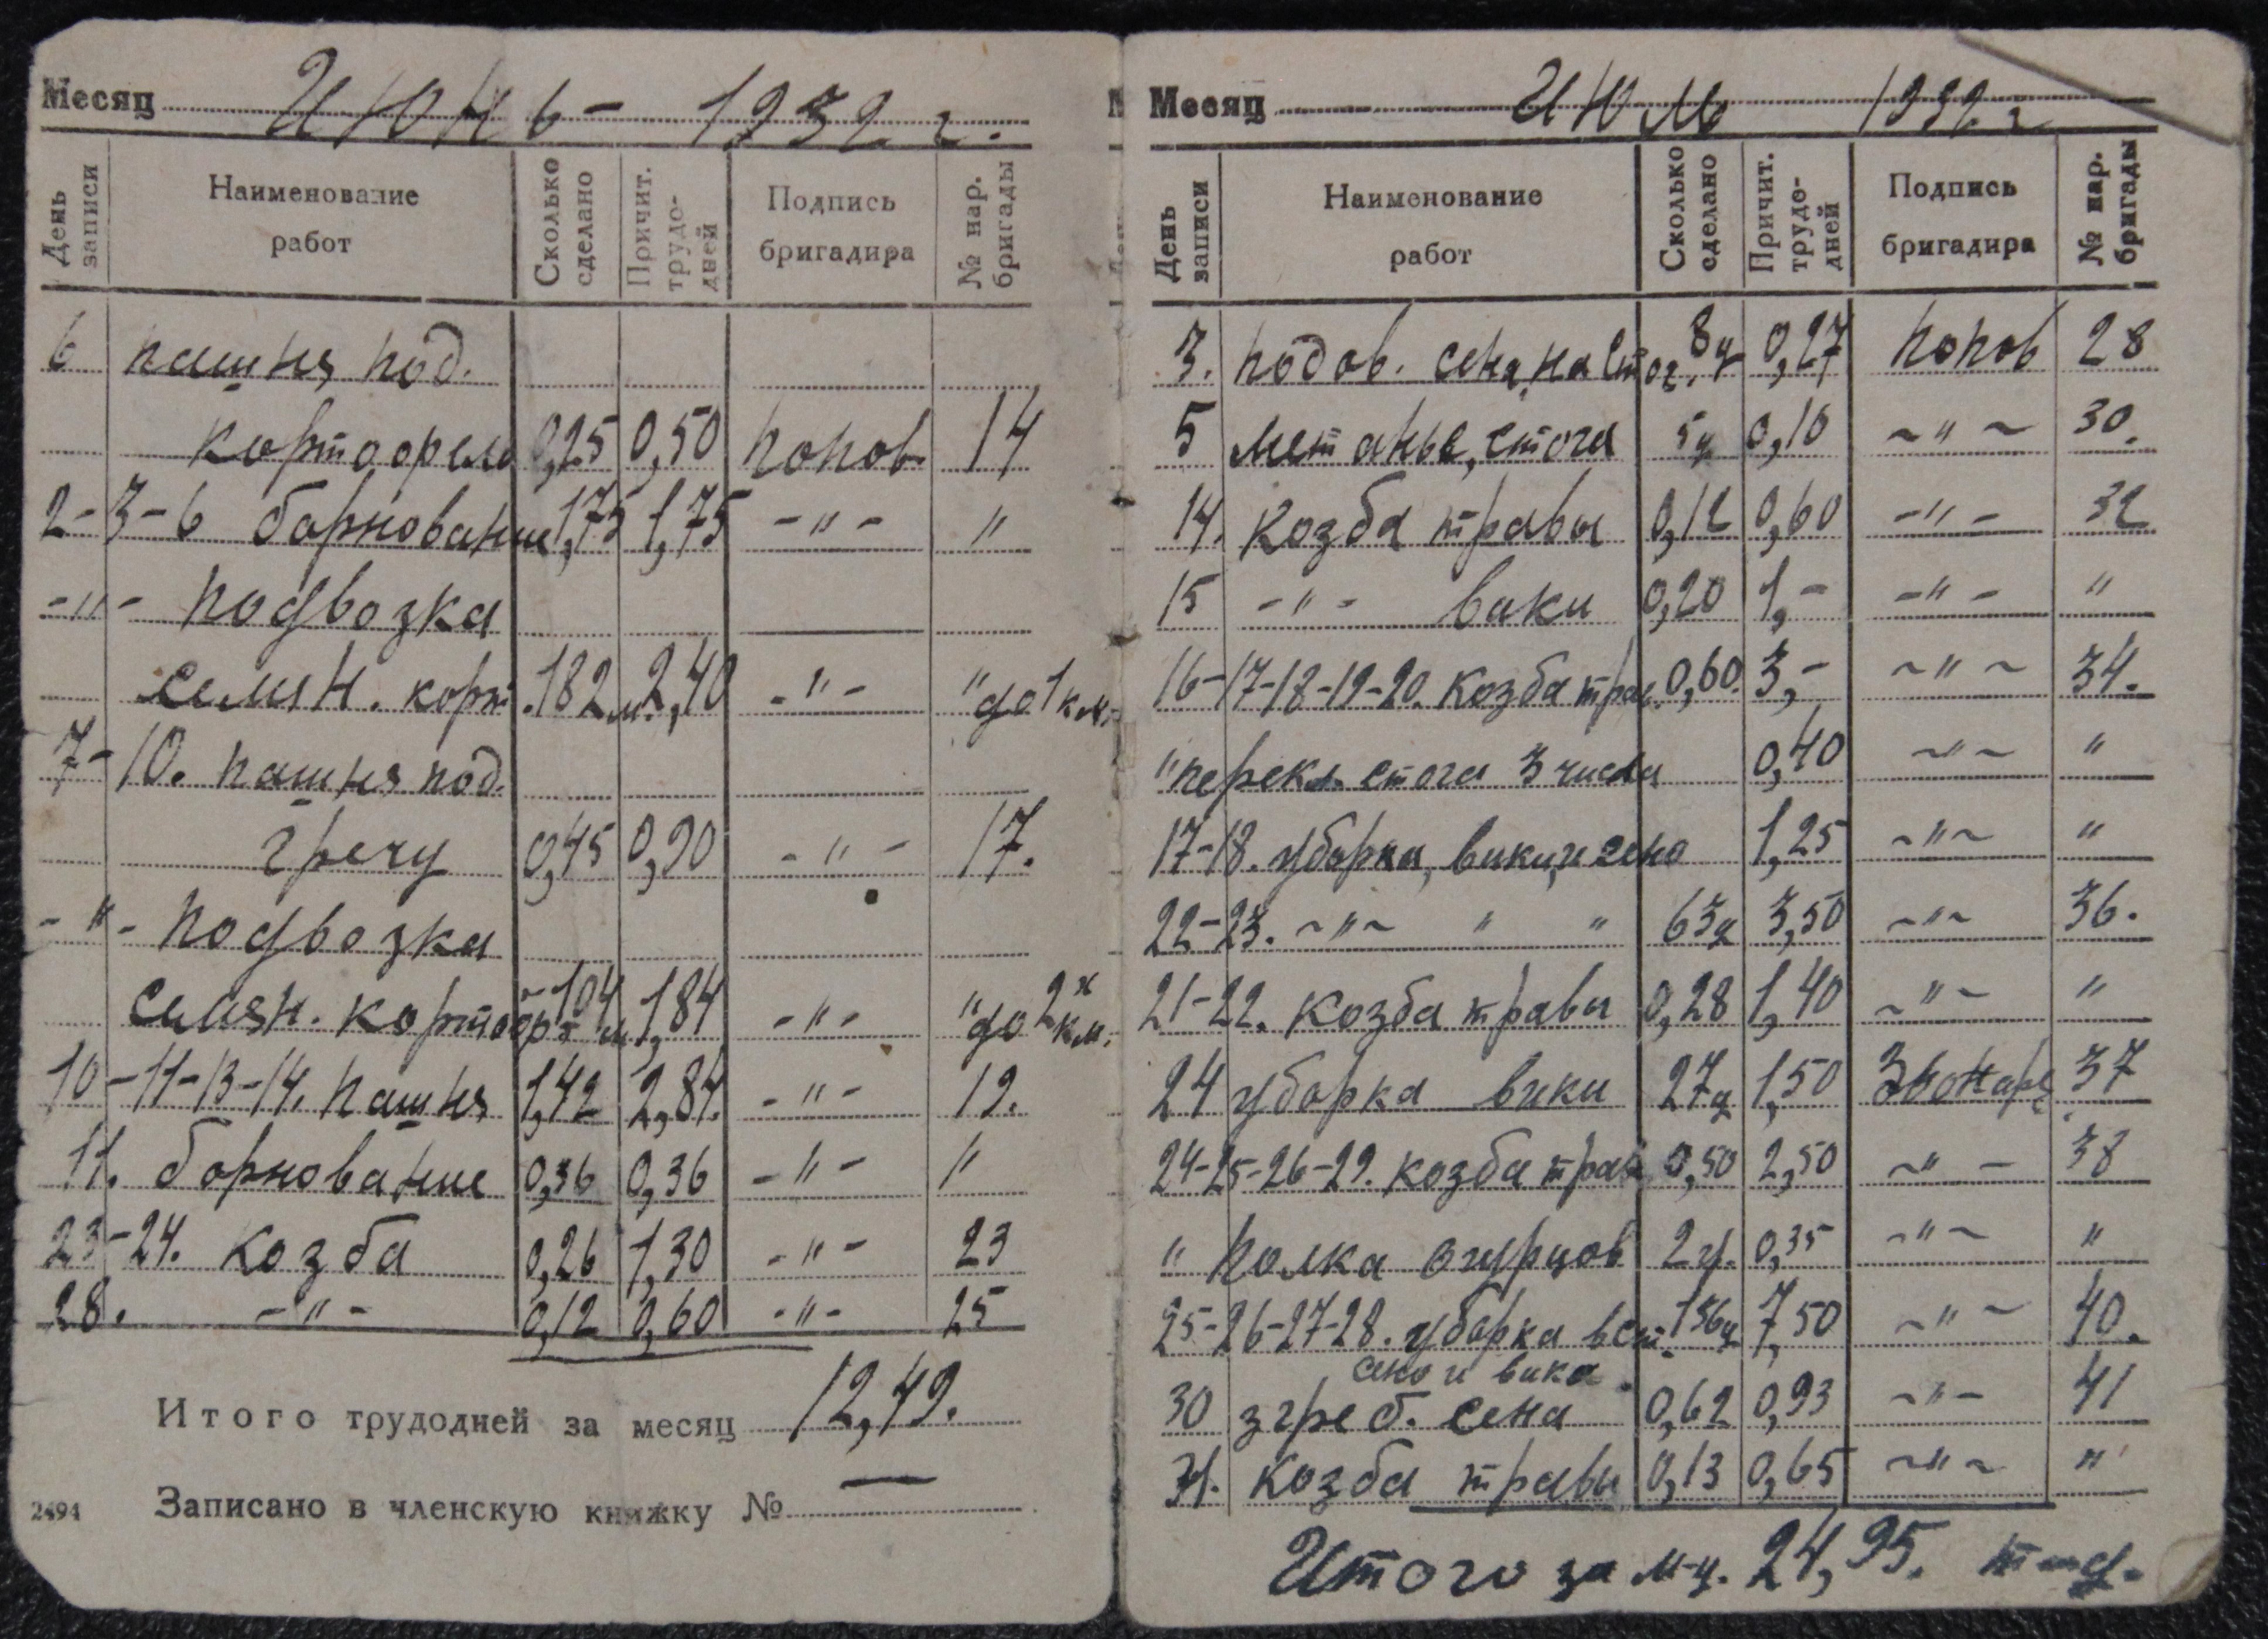 Месяц ИЮНЬ - 1939 г.
День записи
Наименование работ
Сколько сделано
Причит. трудо-дней
Подпись бригадира
№ нар. бригады
6 пашня под.
картоорель 0,25 0,50 Попов 14
2-3-6 борнование 1,75 1,75 -"- "
-"- Подвозка
семян. карт. 182 м. 2,40 -"- " до 1 км.
7-10. пашня под.
гречу 0,45 0,90 -"- 17.
-"- Подвозка
семян. картоорт -104 м 1,84 -"- " до 2х км.
10-11-13-14. пашня 1,42 2,84. -"- 19.
11. борнование 0,36 0,36 -"- "
23-24. козба 0,26 1,30 -"- 23
28. -"- 0,12 0,60 -"- 25
Итого трудодней за месяц 12,49.
Записано в членскую книжку № —
2494
Месяц ИЮЛЬ 1939 г
День записи
Наименование работ
Сколько сделано
Причит. трудо-дней
Подпись бригадира
№ нар. бригады
3. подов. сена на стог. 8ц 0,27 Попов 28
5 метанье, стога 5ц 0,10 ~"~ 30.
14. Козба травы 0,12 0,60 -"- 32
15 -"- вики 0,20 1,- -"- "
16-17-18-19-20. Козба трав. 0,60. 3,- ~"~ 34.
" перекл. стога 3 числа 0,40 ~"~ "
17-18. уборка, вики, и сено 1,25 ~"~ "
22-23. ~"~ " " 63ц 3,50 ~"~ 36.
21-22. козба травы 0,28 1,40 ~"~ "
24 уборка вики 27ц 1,50 Звонарв 37
24-25-26-29. козба трав 0,50 2,50 ~"- 38
" Полка огурцов 2 ч. 0,35 ~"~ "
25-26-27-28. уборка в ст. 136ц 7,50 ~"~ 40.
сено и вика.
30 згреб. сена 0,62 0,93 ~"- 41
31. козба травы 0,13 0,65 ~"~ "
Итого за м-ц. 24,95. т-д.